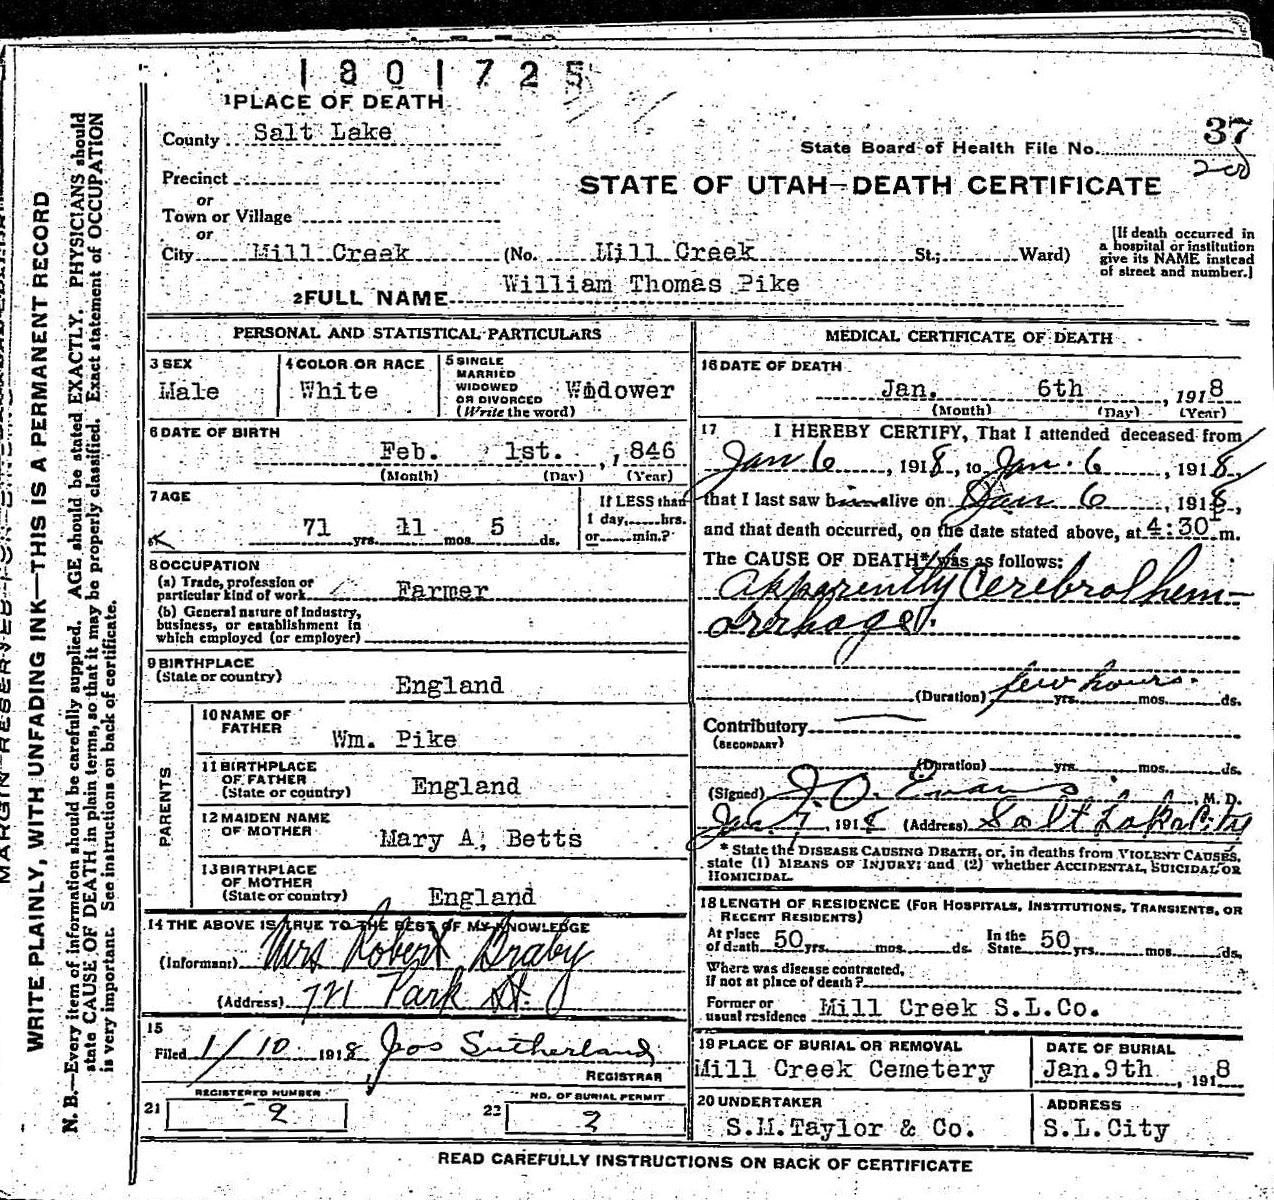 1801725
1 PLACE OF DEATH
County Salt Lake
State Board of Health File No. 37
Precinct
or
STATE OF UTAH—DEATH CERTIFICATE
Town or Village
or
City Mill Creek (No. Mill Creek St.; Ward)
[If death occurred in
a hospital or institution
give its NAME instead
of street and number.]
2 FULL NAME William Thomas Pike
PERSONAL AND STATISTICAL PARTICULARS
3 SEX
Male
4 COLOR OR RACE
White
5 SINGLE
MARRIED
WIDOWED
OR DIVORCED
(Write the word)
Widower
6 DATE OF BIRTH
Feb. 1st. , 1846
(Month) (Day) (Year)
7 AGE
71 yrs. 11 mos. 5 ds.
If LESS than
1 day, hrs.
or min.?
8 OCCUPATION
(a) Trade, profession or
particular kind of work Farmer
(b) General nature of industry,
business, or establishment in
which employed (or employer)
9 BIRTHPLACE
(State or country)
England
PARENTS
10 NAME OF
FATHER
Wm. Pike
11 BIRTHPLACE
OF FATHER
(State or country)
England
12 MAIDEN NAME
OF MOTHER
Mary A. Betts
13 BIRTHPLACE
OF MOTHER
(State or country)
England
14 THE ABOVE IS TRUE TO THE BEST OF MY KNOWLEDGE
(Informant) Mrs Robert Braby
(Address) 721 Park St.
15
Filed 1/10 1918 Jos Sutherland
REGISTRAR
REGISTERED NUMBER
21 2
NO. OF BURIAL PERMIT
22 2
MEDICAL CERTIFICATE OF DEATH
16 DATE OF DEATH
Jan. 6th , 1918
(Month) (Day) (Year)
17 I HEREBY CERTIFY, That I attended deceased from
Jan 6 , 1918, to Jan. 6 , 1918,
that I last saw him alive on Jan 6 , 1918,
and that death occurred, on the date stated above, at 4:30 m.
The CAUSE OF DEATH* was as follows:
Apparently Cerebral hem-
orrhage.
(Duration) few hours. yrs. mos. ds.
Contributory
(SECONDARY)
(Duration) yrs. mos. ds.
(Signed) J. O. Evans , M. D.
Jan 7, 1918 (Address) Salt Lake City
* State the DISEASE CAUSING DEATH, or, in deaths from VIOLENT CAUSES,
state (1) MEANS OF INJURY; and (2) whether ACCIDENTAL, SUICIDAL OR
HOMICIDAL.
18 LENGTH OF RESIDENCE (FOR HOSPITALS, INSTITUTIONS, TRANSIENTS, OR
RECENT RESIDENTS)
At place
of death 50 yrs. mos. ds.
In the
State 50 yrs. mos. ds.
Where was disease contracted,
if not at place of death?
Former or
usual residence Mill Creek S.L.Co.
19 PLACE OF BURIAL OR REMOVAL
Mill Creek Cemetery
DATE OF BURIAL
Jan. 9th , 1918
20 UNDERTAKER
S.M. Taylor & Co.
ADDRESS
S.L.City
READ CAREFULLY INSTRUCTIONS ON BACK OF CERTIFICATE
WRITE PLAINLY, WITH UNFADING INK—THIS IS A PERMANENT RECORD
N. B.—Every item of information should be carefully supplied. AGE should be stated EXACTLY. PHYSICIANS should
state CAUSE OF DEATH in plain terms, so that it may be properly classified. Exact statement of OCCUPATION
is very important. See instructions on back of certificate.